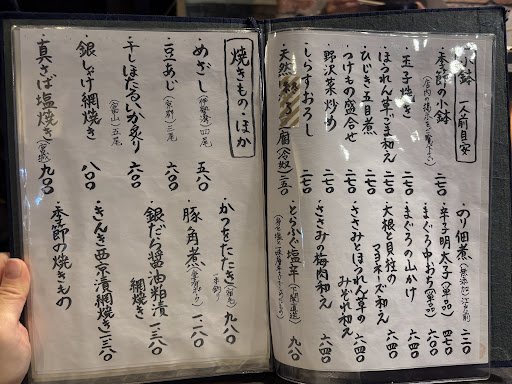 小鉢 一人前目安
・季節の小鉢 二七〇
(店内の掲示をご覧下さい)
・玉子焼き 二七〇
・ほうれん草ごま和え 二七〇
・ひじき五目煮 二七〇
・つけもの盛合せ 二七〇
・野沢菜炒め 二七〇
・しらすおろし 二七〇
・天然
腐(冷奴)二五〇
・のり佃煮(無添加、江戸前) 二二〇
・辛子明太子(単品) 四七〇
・まぐろ中おち(単品) 六四〇
・まぐろの山かけ 六四〇
・大根と貝柱の
マヨネーズ和え 六四〇
・ささみとほうれん草の
みぞれ和え 六四〇
・ささみの梅肉和え 六四〇
・とらふぐ塩辛(下関直送) 九八〇
焼きもの・ほか
・めざし(伊勢湾)四尾 五八〇
・豆あじ(京前)三尾 六〇〇
・干しほたるいか炙り 六〇〇
(富山)五尾
・銀しゃけ網焼き 八〇〇
・真さば塩焼き 九〇〇
・かつをたたき 九八〇
・豚角煮 一二八〇
・銀だら醤油粕漬
網焼き 一三八〇
・きんき西京漬網焼き 一三八〇
・季節の焼きもの